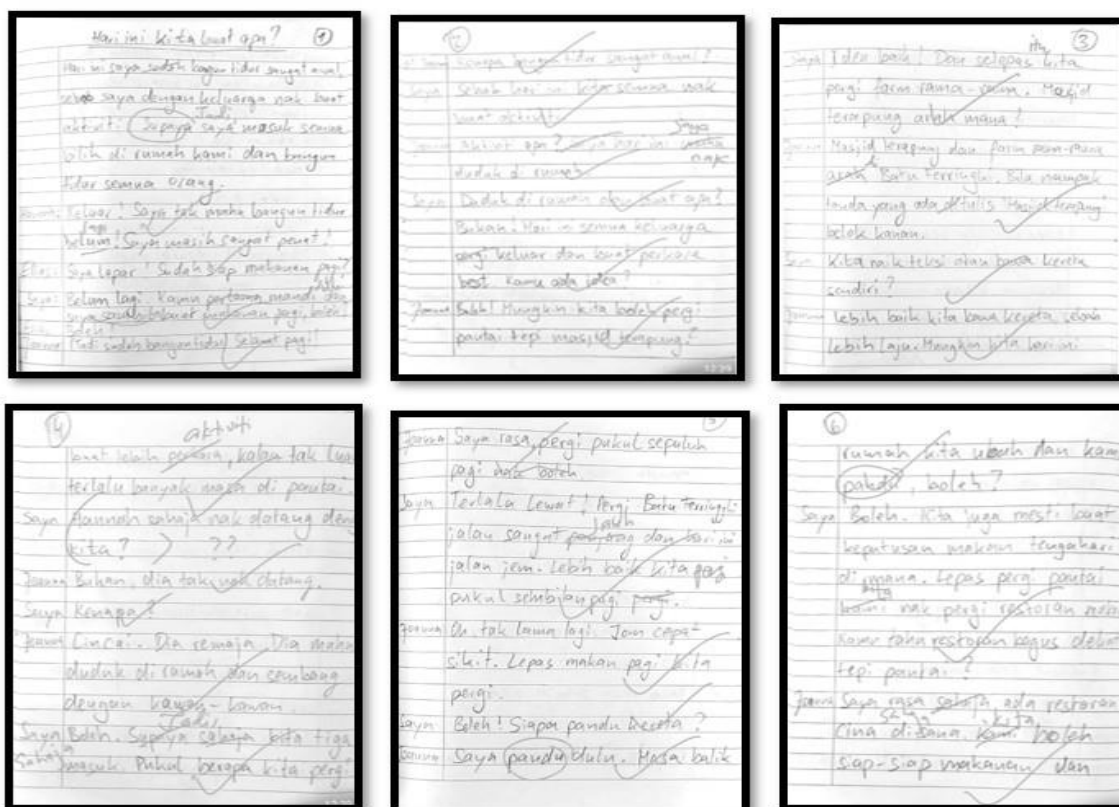 Hari ini kita buat apa? 1
Hari ini saya sudah bangun tidur sangat awal
sebab saya dengan keluarga nak buat
Jadi
aktiviti. Supaya saya masuk semua
bilik di rumah kami dan bangun
tidur semua orang.
Keluar! Saya tak mahu bangun tidur
lagi
belum! Saya masih sangat penat!
Saya lapar! Sudah siap makanan pagi?
Saya: Belum lagi. Kamu pertama mandi dan
saya buat makanan pagi, boleh
boleh?
Joanna: Tadi sudah bangun tidur. Selamat pagi!
Kenapa bangun tidur sangat awal?
Saya Sebab hari ini kita semua nak
buat aktiviti.
Saya
Joanna Aktiviti apa? Saya hari ini
nak
duduk di rumah.
Saya Duduk di rumah dan buat apa?
Bukan! Hari ini semua keluarga
pergi keluar dan buat perkara
best. Kamu ada idea?
Joanna Boleh! Mungkin kita boleh pergi
pantai tepi masjid terapung?
3
itu
Saya Idea baik! Dan selepas kita
pergi farm rama-rama. Masjid
terapung arah mana?
Joanna Masjid terapung dan farm rama-rama
di
arah Batu Ferringhi. Bila nampak
tanda yang ada ditulis "Masjid terapung"
belok kanan.
Saya Kita naik teksi atau bawa kereta
sendiri?
Joanna Lebih baik kita bawa kereta sebab
lebih laju. Mungkin kita hari ini
4
aktiviti
buat lebih perkara, kalau tak
terlalu banyak masa di pantai.
Saya Hannah sahaja nak datang
kita? ??
Joanna Bukan, dia tak nak datang.
Saya Kenapa?
Joanna Cincai. Dia remaja. Dia mahu
duduk di rumah dan sembang
dengan kawan-kawan.
Jadi
Saya Boleh. Supaya sahaja kita tiga
sahaja
masuk. Pukul berapa kita pergi
Joanna Saya rasa, pergi pukul sepuluh
pagi boleh.
Saya Terlalu lewat! Pergi Batu Ferringhi
jauh
jalan sangat panjang dan hari ini
jalan jem. Lebih baik kita
pukul sembilan pagi pergi.
Joanna Oh tak lama lagi. Jom cepat
sikit. Lepas makan pagi kita
pergi.
Saya Boleh! Siapa pandu kereta?
Joanna Saya pandu dulu. Masa balik
6
rumah kita ubah dan
pandu, boleh?
Saya Boleh. Kita juga mesti buat
keputusan makan tengahari
di mana. Lepas pergi pantai
kita
kami nak pergi restoran
Kamu tahu restoran bagus
tepi pantai?
Joanna Saya rasa sahaja, ada restoran
kita
Cina disana. kami boleh
siap-siap makanan dan